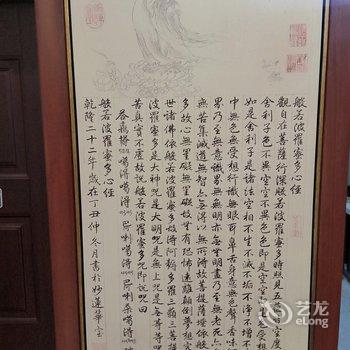 般若波羅蜜多心經
觀自在菩薩行深般若波羅蜜多時照見五蘊皆空度
舍利子色不異空空不異色色即是空空即是色受想
如是舍利子是諸法空相不生不滅不垢不淨不增不
中無色無受想行識無眼耳鼻舌身意無色聲香味
界乃至無意識界無無明亦無無明盡乃至無老死
無苦集滅道無智亦無得以無所得故菩提薩埵依般
多故心無罣礙無罣礙故無有恐怖遠離顛倒夢想
世諸佛依般若波羅蜜多故得阿耨多羅三藐三菩提
波羅蜜多是大神咒是大明咒是無上咒是無等等咒
苦真實不虛故說般若波羅蜜多咒即說咒曰
般若波羅蜜多心經
乾隆二十二年歲在丁丑仲冬月書於妙蓮華室
艺龙
eLong.com